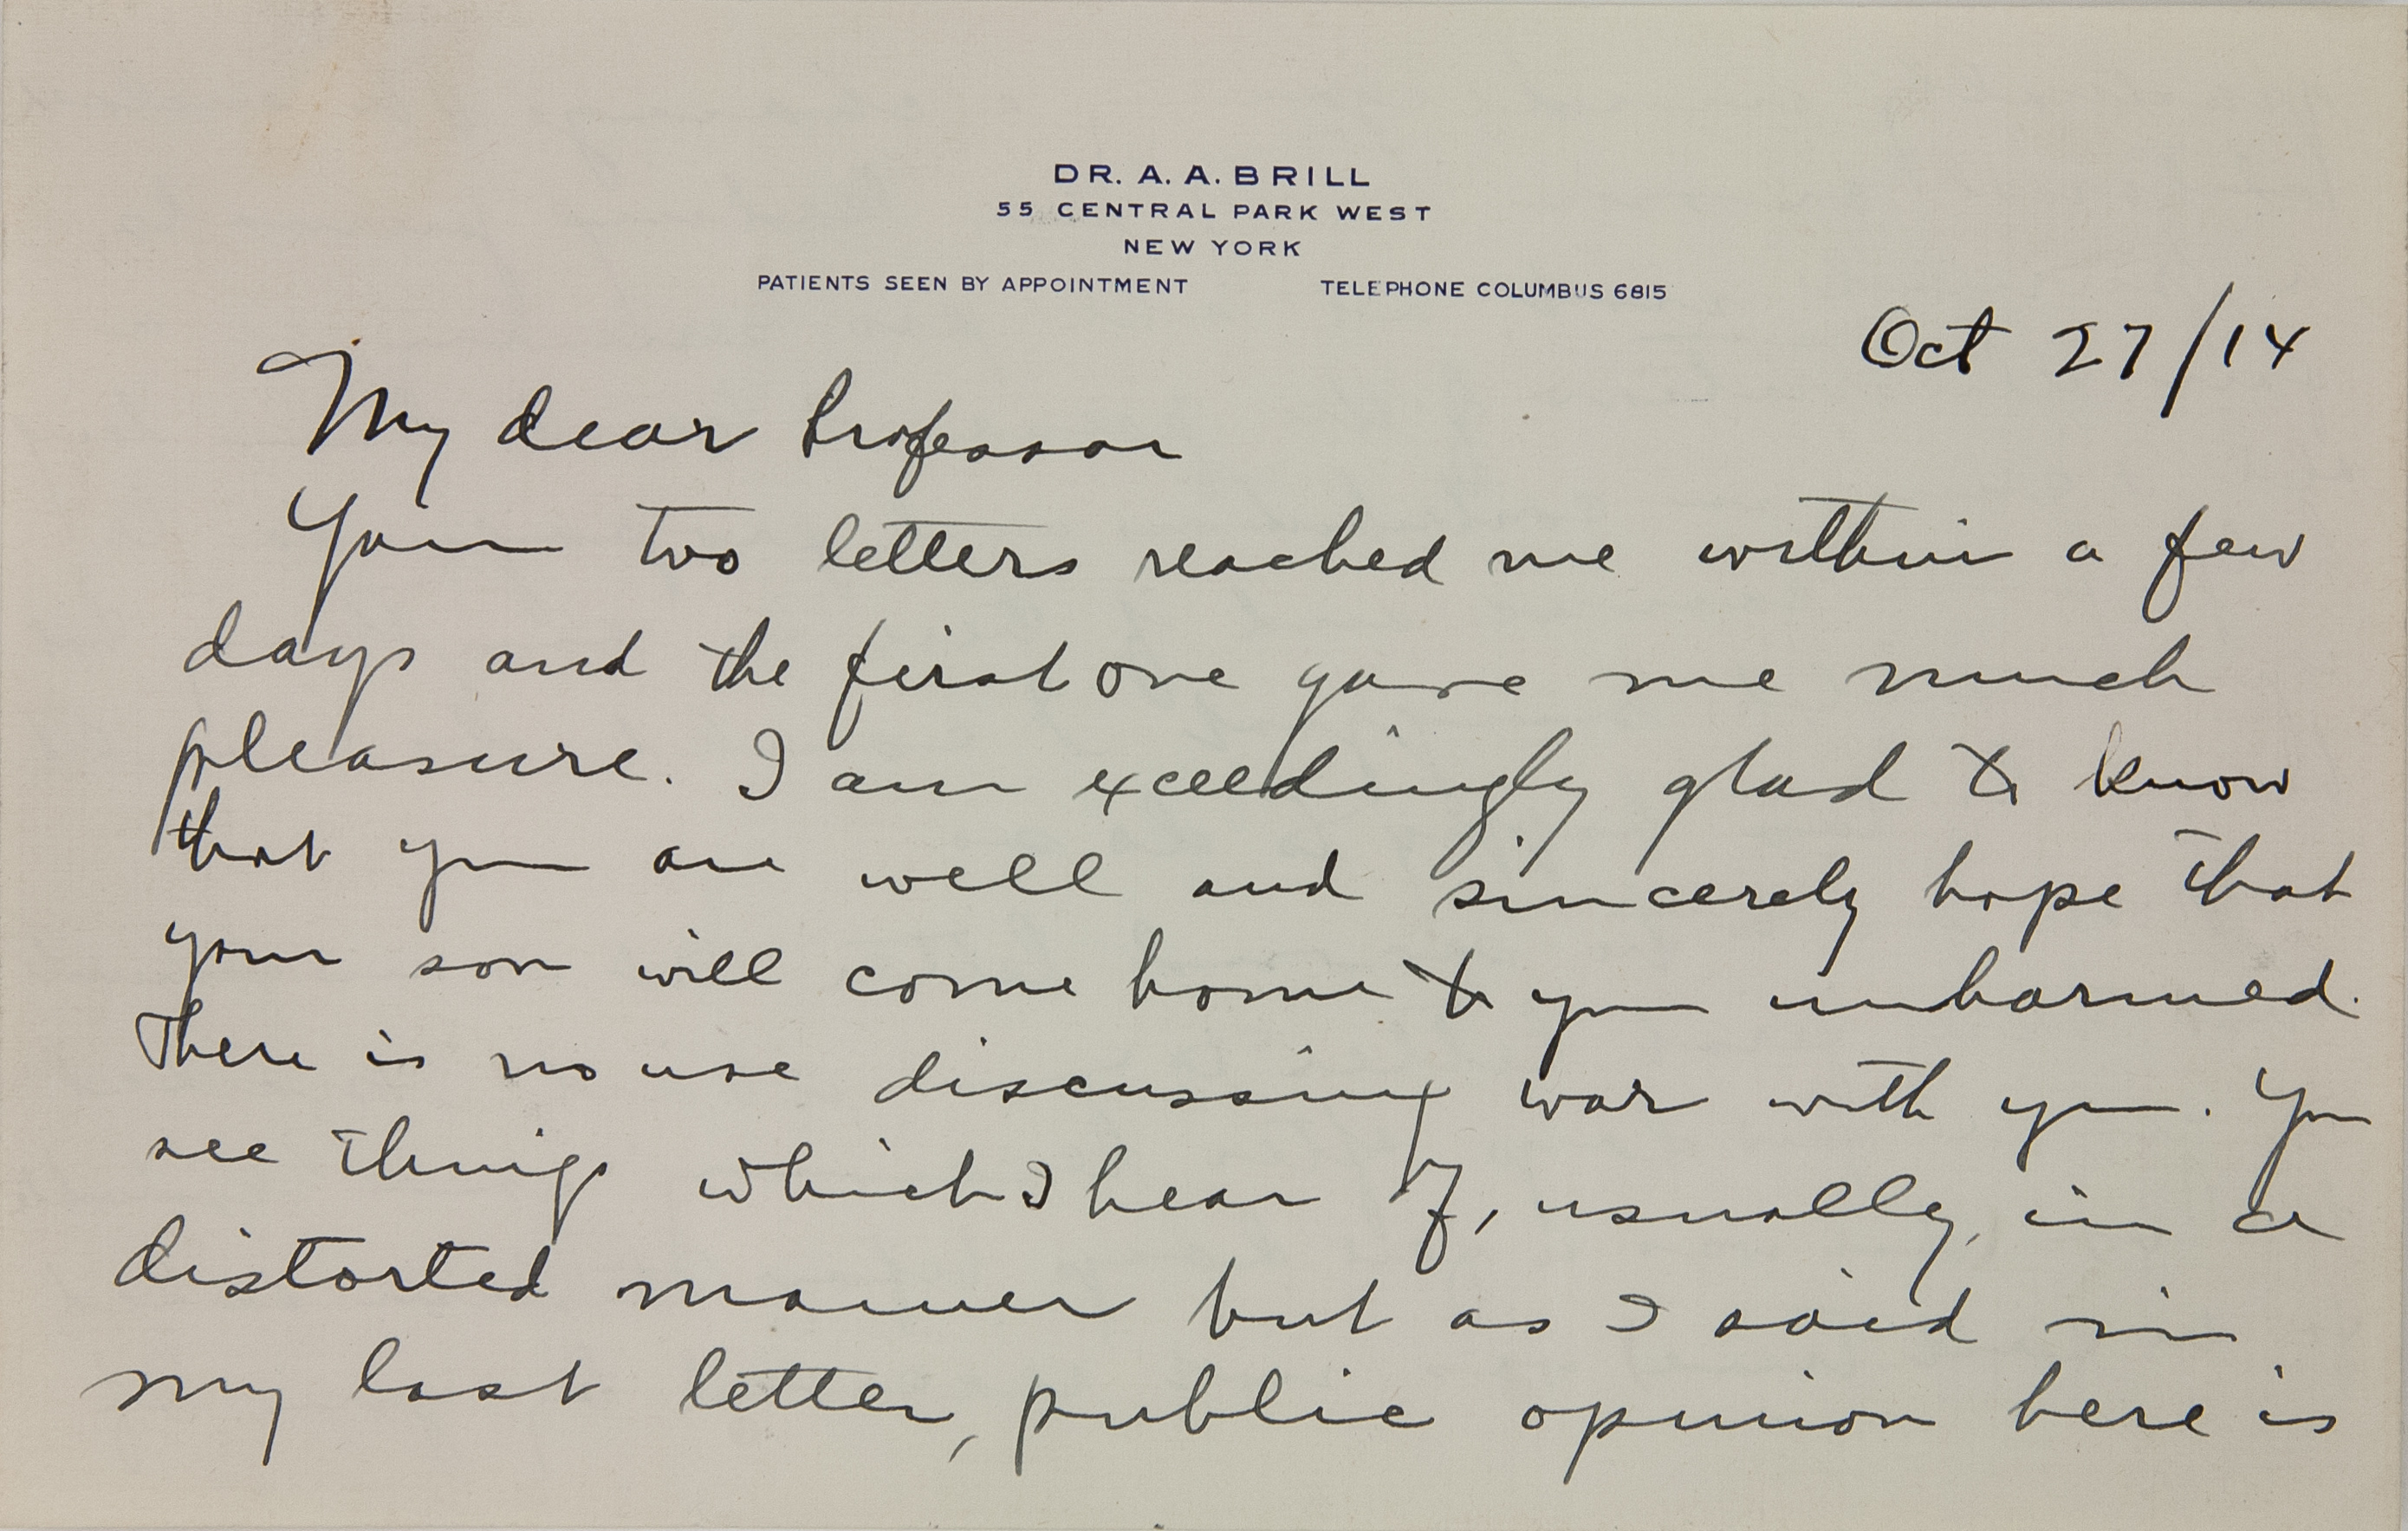 DR. A. A. BRILL
55 CENTRAL PARK WEST
NEW YORK
PATIENTS SEEN BY APPOINTMENT TELEPHONE COLUMBUS 6815
Oct 27/14
My dear Professor
Your two letters reached me within a few
days and the first one gave me much
pleasure. I am exceedingly glad to know
that you are well and sincerely hope that
your son will come home to you unharmed.
There is no use discussing war with you. You
see things which I hear of, usually, in a
distorted manner but as I said in
my last letter, public opinion here is